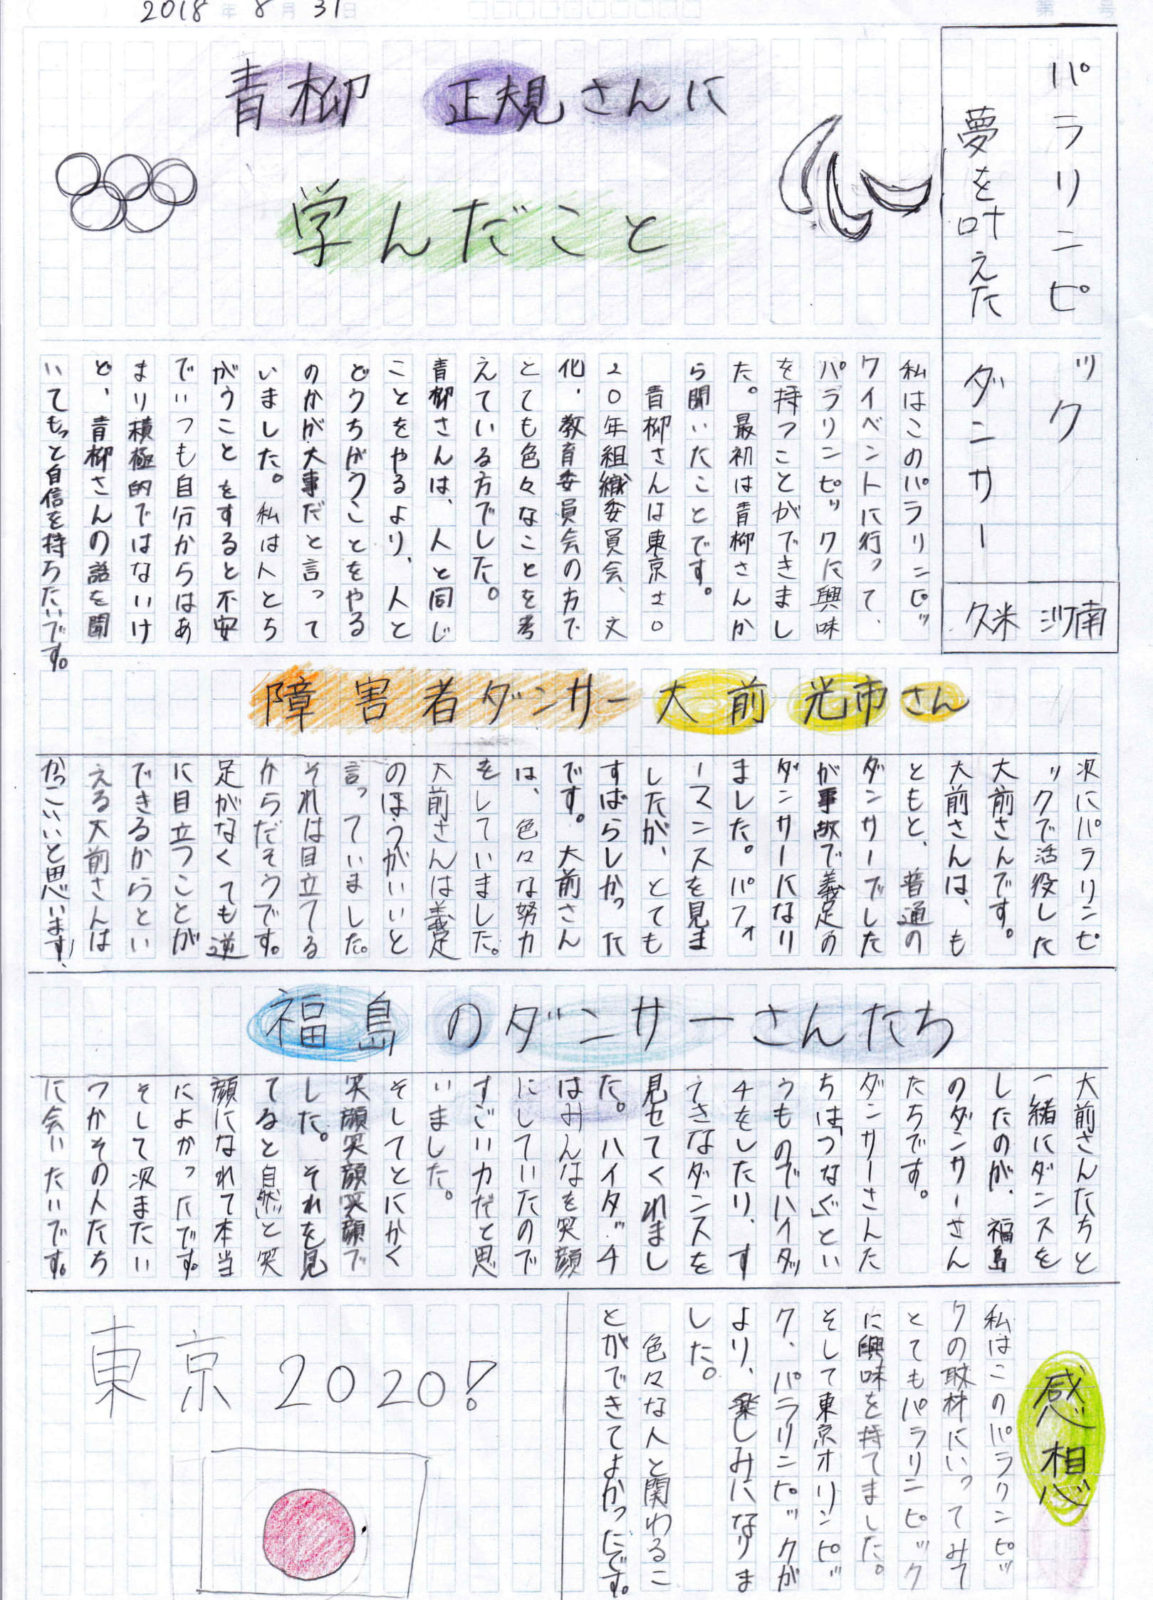 2018年8月31日
第　号
パラリンピック
夢を叶えた　ダンサー
久米　沙南
青柳　正規さんに
学んだこと
私はこのパラリンピッ
クイベントに行って、
パラリンピックに興味
を持つことができまし
た。最初は青柳さんか
ら聞いたことです。
青柳さんは東京２０
２０年組織委員会、文
化、教育委員会の方で
とても色々なことを考
えている方でした。
青柳さんは、人と同じ
ことをやるより、人と
どうちがうことをやる
のかが大事だと言って
いました。私は人とち
がうことをすると不安
でいつも自分からはあ
まり積極的ではないけ
ど、青柳さんの話を聞
いてもっと自信を持ちたいです。
障害者ダンサー大前光市さん
次にパラリンピ
ックで活役した
大前さんです。
大前さんは、も
ともと、普通の
ダンサーでした
が事故で義足の
ダンサーになり
ました。パフォ
ーマンスを見ま
したが、とても
すばらしかった
です。大前さん
は、色々な努力
をしていました。
大前さんは義足
のほうがいいと
言っていました。
それは目立てる
からだそうです。
足がなくても逆
に目立つことが
できるからとい
える大前さんは
かっこいいと思います！
福島のダンサーさんたち
大前さんたちと
一緒にダンスを
したのが、福島
のダンサーさん
たちです。
ダンサーさんた
ちは「つなぐ」とい
うものでハイタッ
チをしたり、す
てきなダンスを
見せてくれまし
た。ハイタッチ
はみんなを笑顔
にしていたので
すごい力だと思
いました。
そしてとにかく
笑顔笑顔笑顔で
した。それを見
てると自然と笑
顔になれて本当
によかったです。
そして次またい
つかその人たち
に会いたいです。
感想
私はこのパラリンピッ
クの取材にいってみて
とてもパラリンピック
に興味を持てました。
そして東京オリンピッ
ク、パラリンピックが
より、楽しみになりま
した。
色々な人と関わるこ
とができてよかったです。
東京2020!